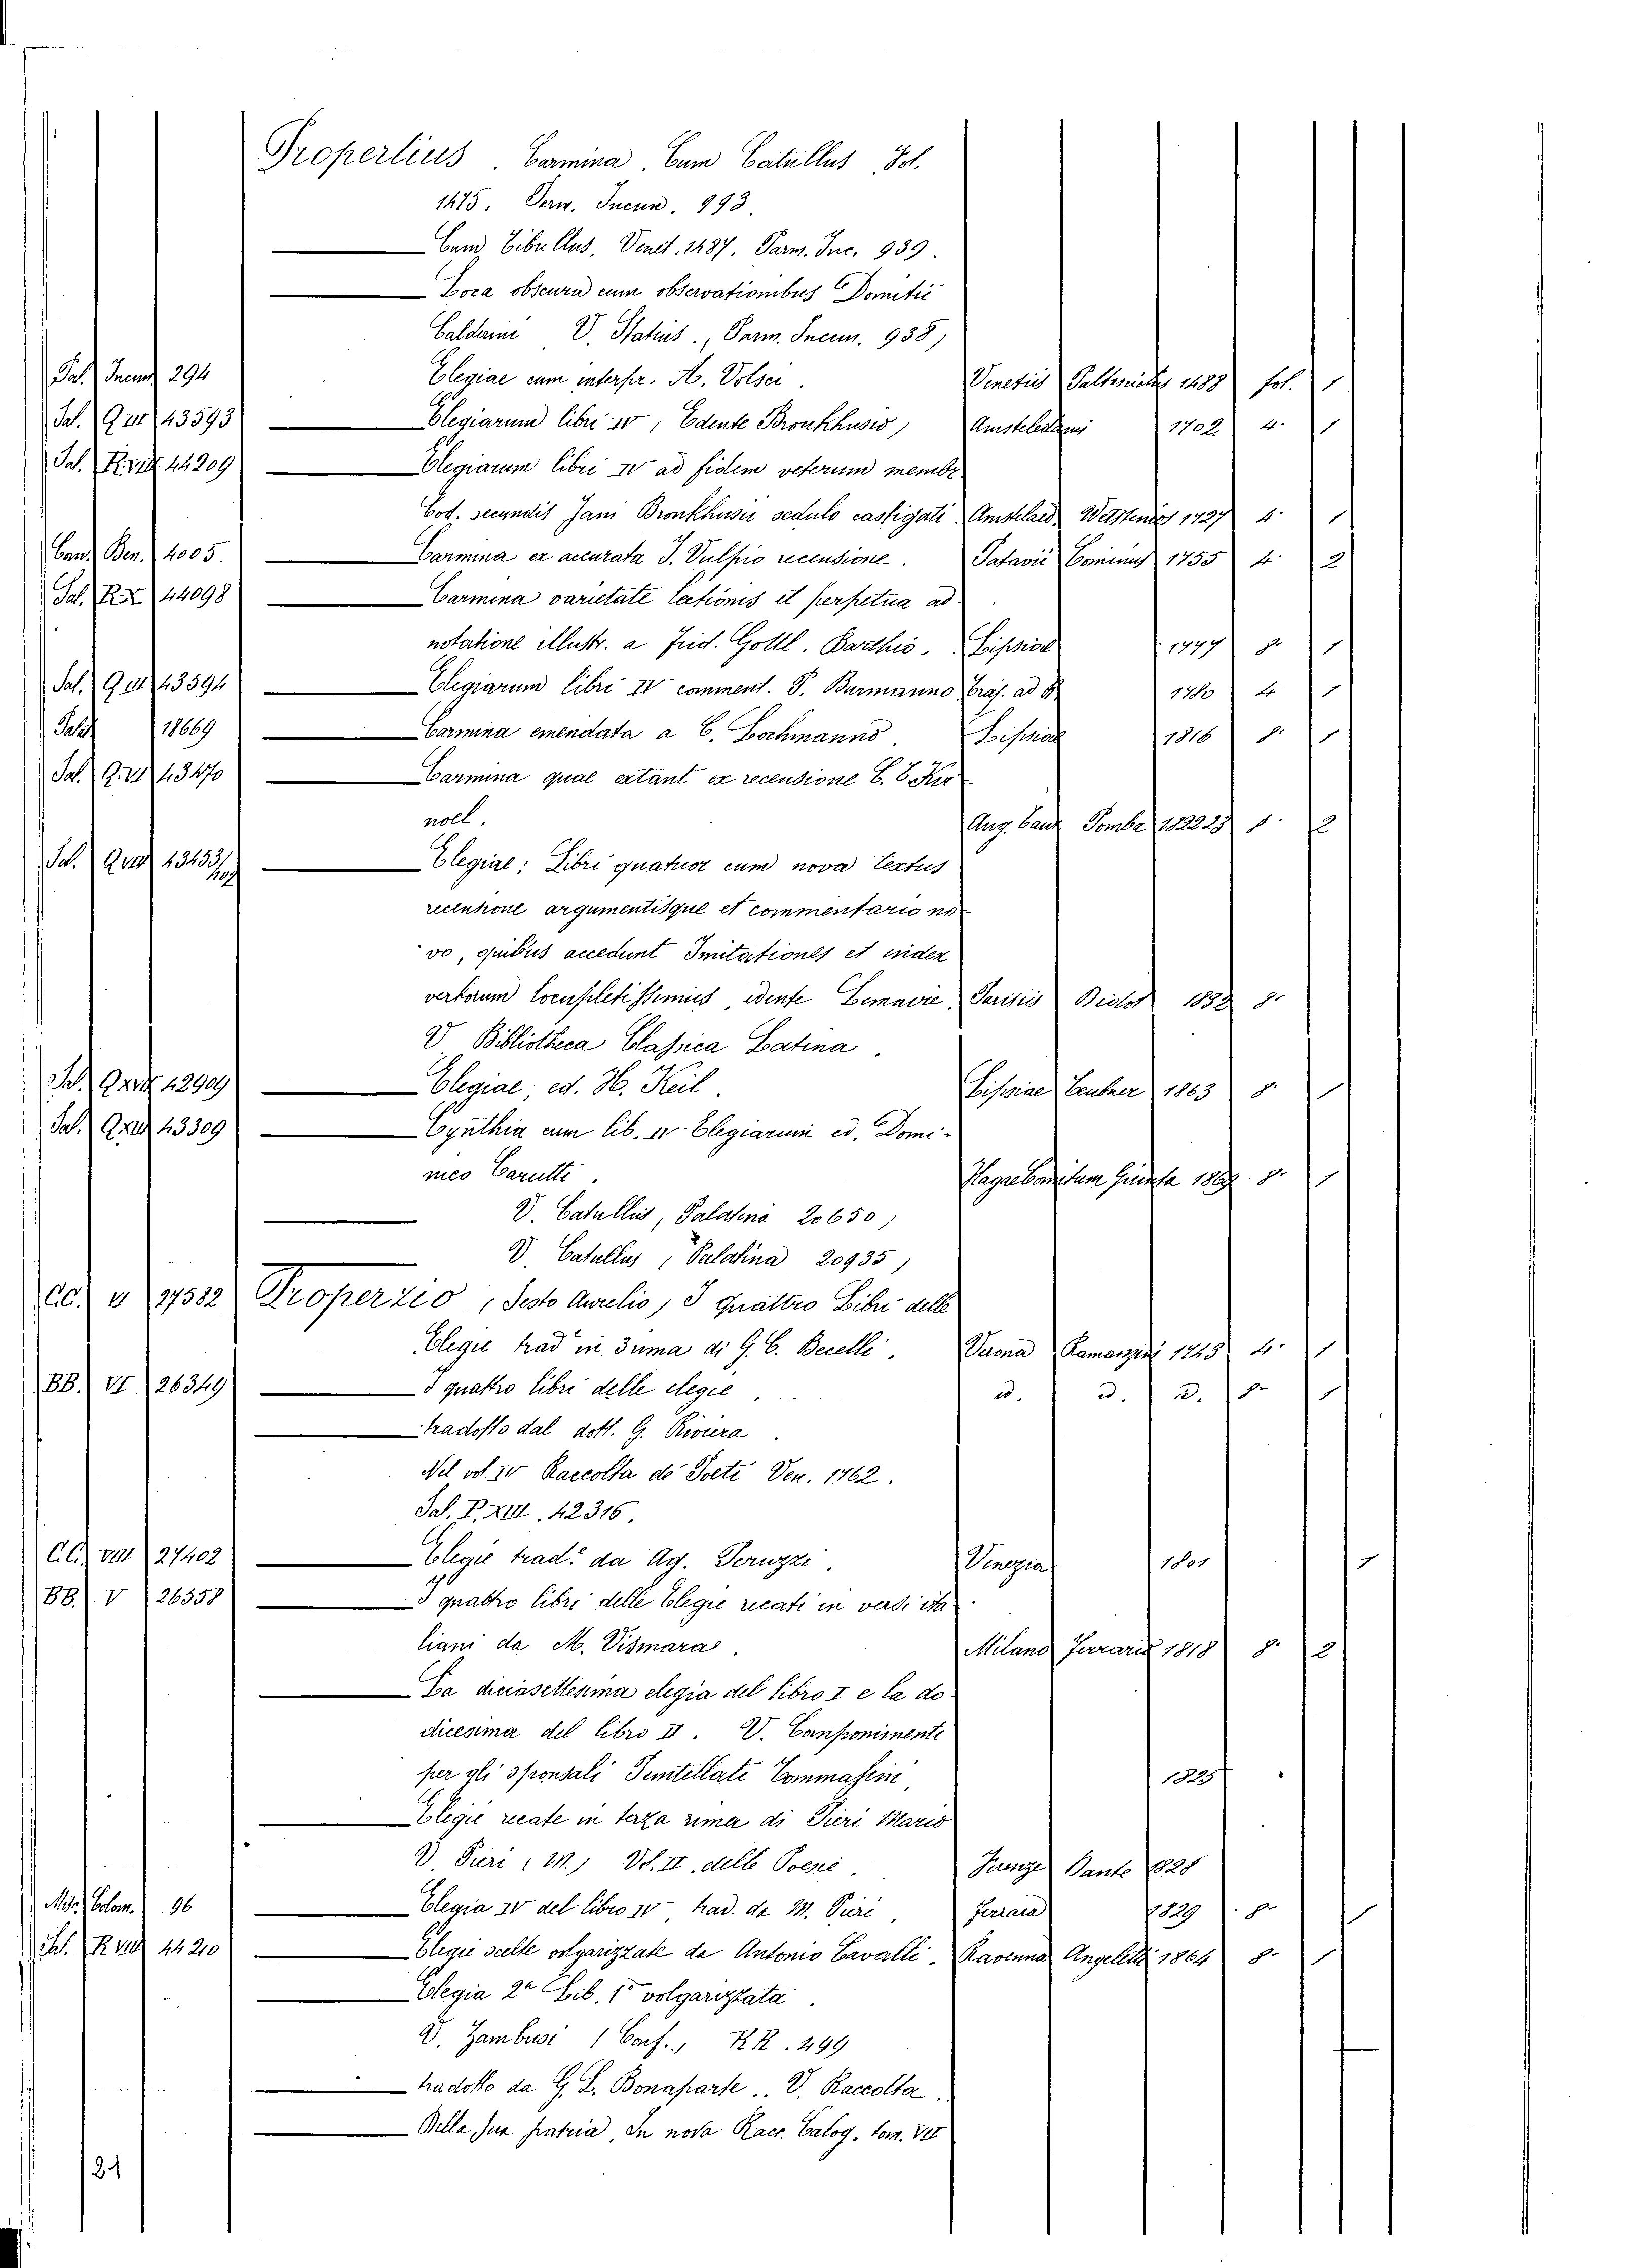 Propertius. Carmina. Cum Catullus Fol.
1475. Parm. Incun. 993.
Cum Tibullus. Venet. 1487. Parm. Inc. 939.
Loca obscura cum observationibus Domitii
Calderini V. Statius., Parm. Incun. 938)
Pal. Incun 294 Elegiae cum interpr. A. Volsci. Venetiis 1488 fol. 1
Pal. 43593 Elegiarum libri IV, Edente Bronkhusio, Amsteledami 1702 4. 1
Pal. 44209 Elegiarum libri IV ad fidem veterum membr.
Cod. secundis Jani Bronkhusii sedulo castigati. Amstelaed. Wetstenios 1727 4. 1
Ben. 4005. Carmina ex accurata J. Vulpio recensione. Patavii Cominus 1755 4. 2
Pal. R.X 44098 Carmina varietate lectionis et perpetua ad-
notatione illustr. a Frid. Gottl. Barthio. Lipsiae 1777 8. 1
Pal. 43594 Elegiarum libri IV comment. P. Burmanno Traj. ad R. 1780 4. 1
Palat 18669 Carmina emendata a C. Lachmanno. Lipsiae 1816 8. 1
Pal. 43470 Carmina quae extant ex recensione C. T. Kui-
noll. Aug. Taur. Pomba 1822 23 8. 2
Pal. 43453/ Elegiae: Libri quatuor cum nova textus
recensione argumentisque et commentario no-
vo, quibus accedunt Imitationes et index
verborum locupletissimus, edente Lemaire. Parisiis Didot 1832 8.
V Bibliotheca Classica Latina.
42909 Elegiae, ed. H. Keil. Lipsiae Teubner 1863 8. 1
Pal. 43309 Cynthia cum lib. IV Elegiarum ed. Domi-
nico Carutti. Hagae Comitum 1869 8. 1
V. Catullus, Palatina 20650)
V. Catullus, Palatina 20935)
CC. V 27582 Properzio, Sesto Aurelio, I quattro Libri delle
Elegie trad. in rima di G. C. Becelli. Verona Ramanzini 1743 4. 1
BB. VI 26349 I quattro libri delle elegie. id. id. id. 8. 1
tradotto dal dott. G. Riviera.
Nel vol. IV Raccolta de' Poeti Ven. 1762.
Pal. P. XIII. 42316.
CC. VIII 27402 Elegie trad. da Ag. Peruzzi. Venezia 1801 1
BB. V 26558 I quattro libri delle Elegie recati in versi ita-
liani da M. Vismara. Milano Ferrario 1818 8. 2
La diciasettesima elegia del libro I e la do-
dicesima del libro II. V. Componimenti
per gli sponsali Puntellati Tommasini. 1825
Elegie recate in terza rima di Pieri Mario
V. Pieri (M.) Vol. II delle Poesie. Firenze Dante 1828
Colom. 96 Elegia IV del libro IV, trad. da M. Pieri. Ferrara 1829 8. 1
R. VIII 44210 Elegie scelte volgarizzate da Antonio Cavalli. Ravenna Angeletti 1864 8. 1
Elegia 2a Lib. 1o volgarizzata.
V. Zambusi (Conf.) RR. 299
tradotto da G. L. Bonaparte. V. Raccolta.
Della sua patria. In nova Racc. Calog. tom. VII
121